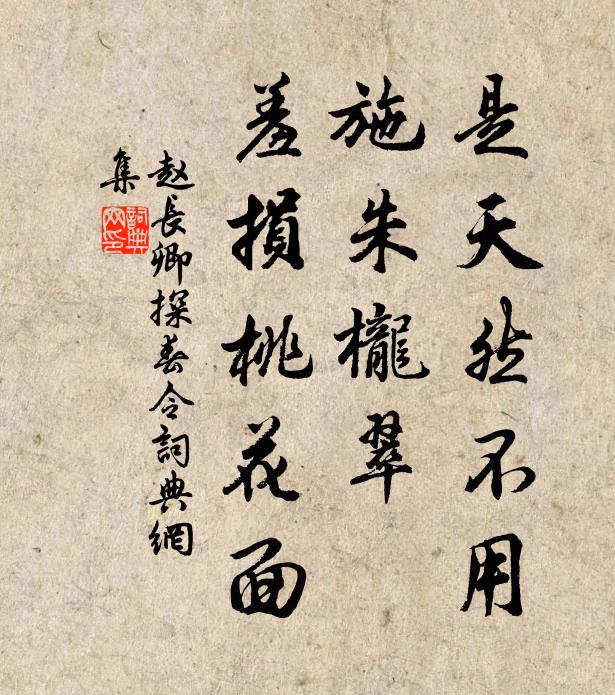 是天然不用
施朱櫳翠
羞損桃花面
赵長卿探春令詞典網
集
詞典
网印